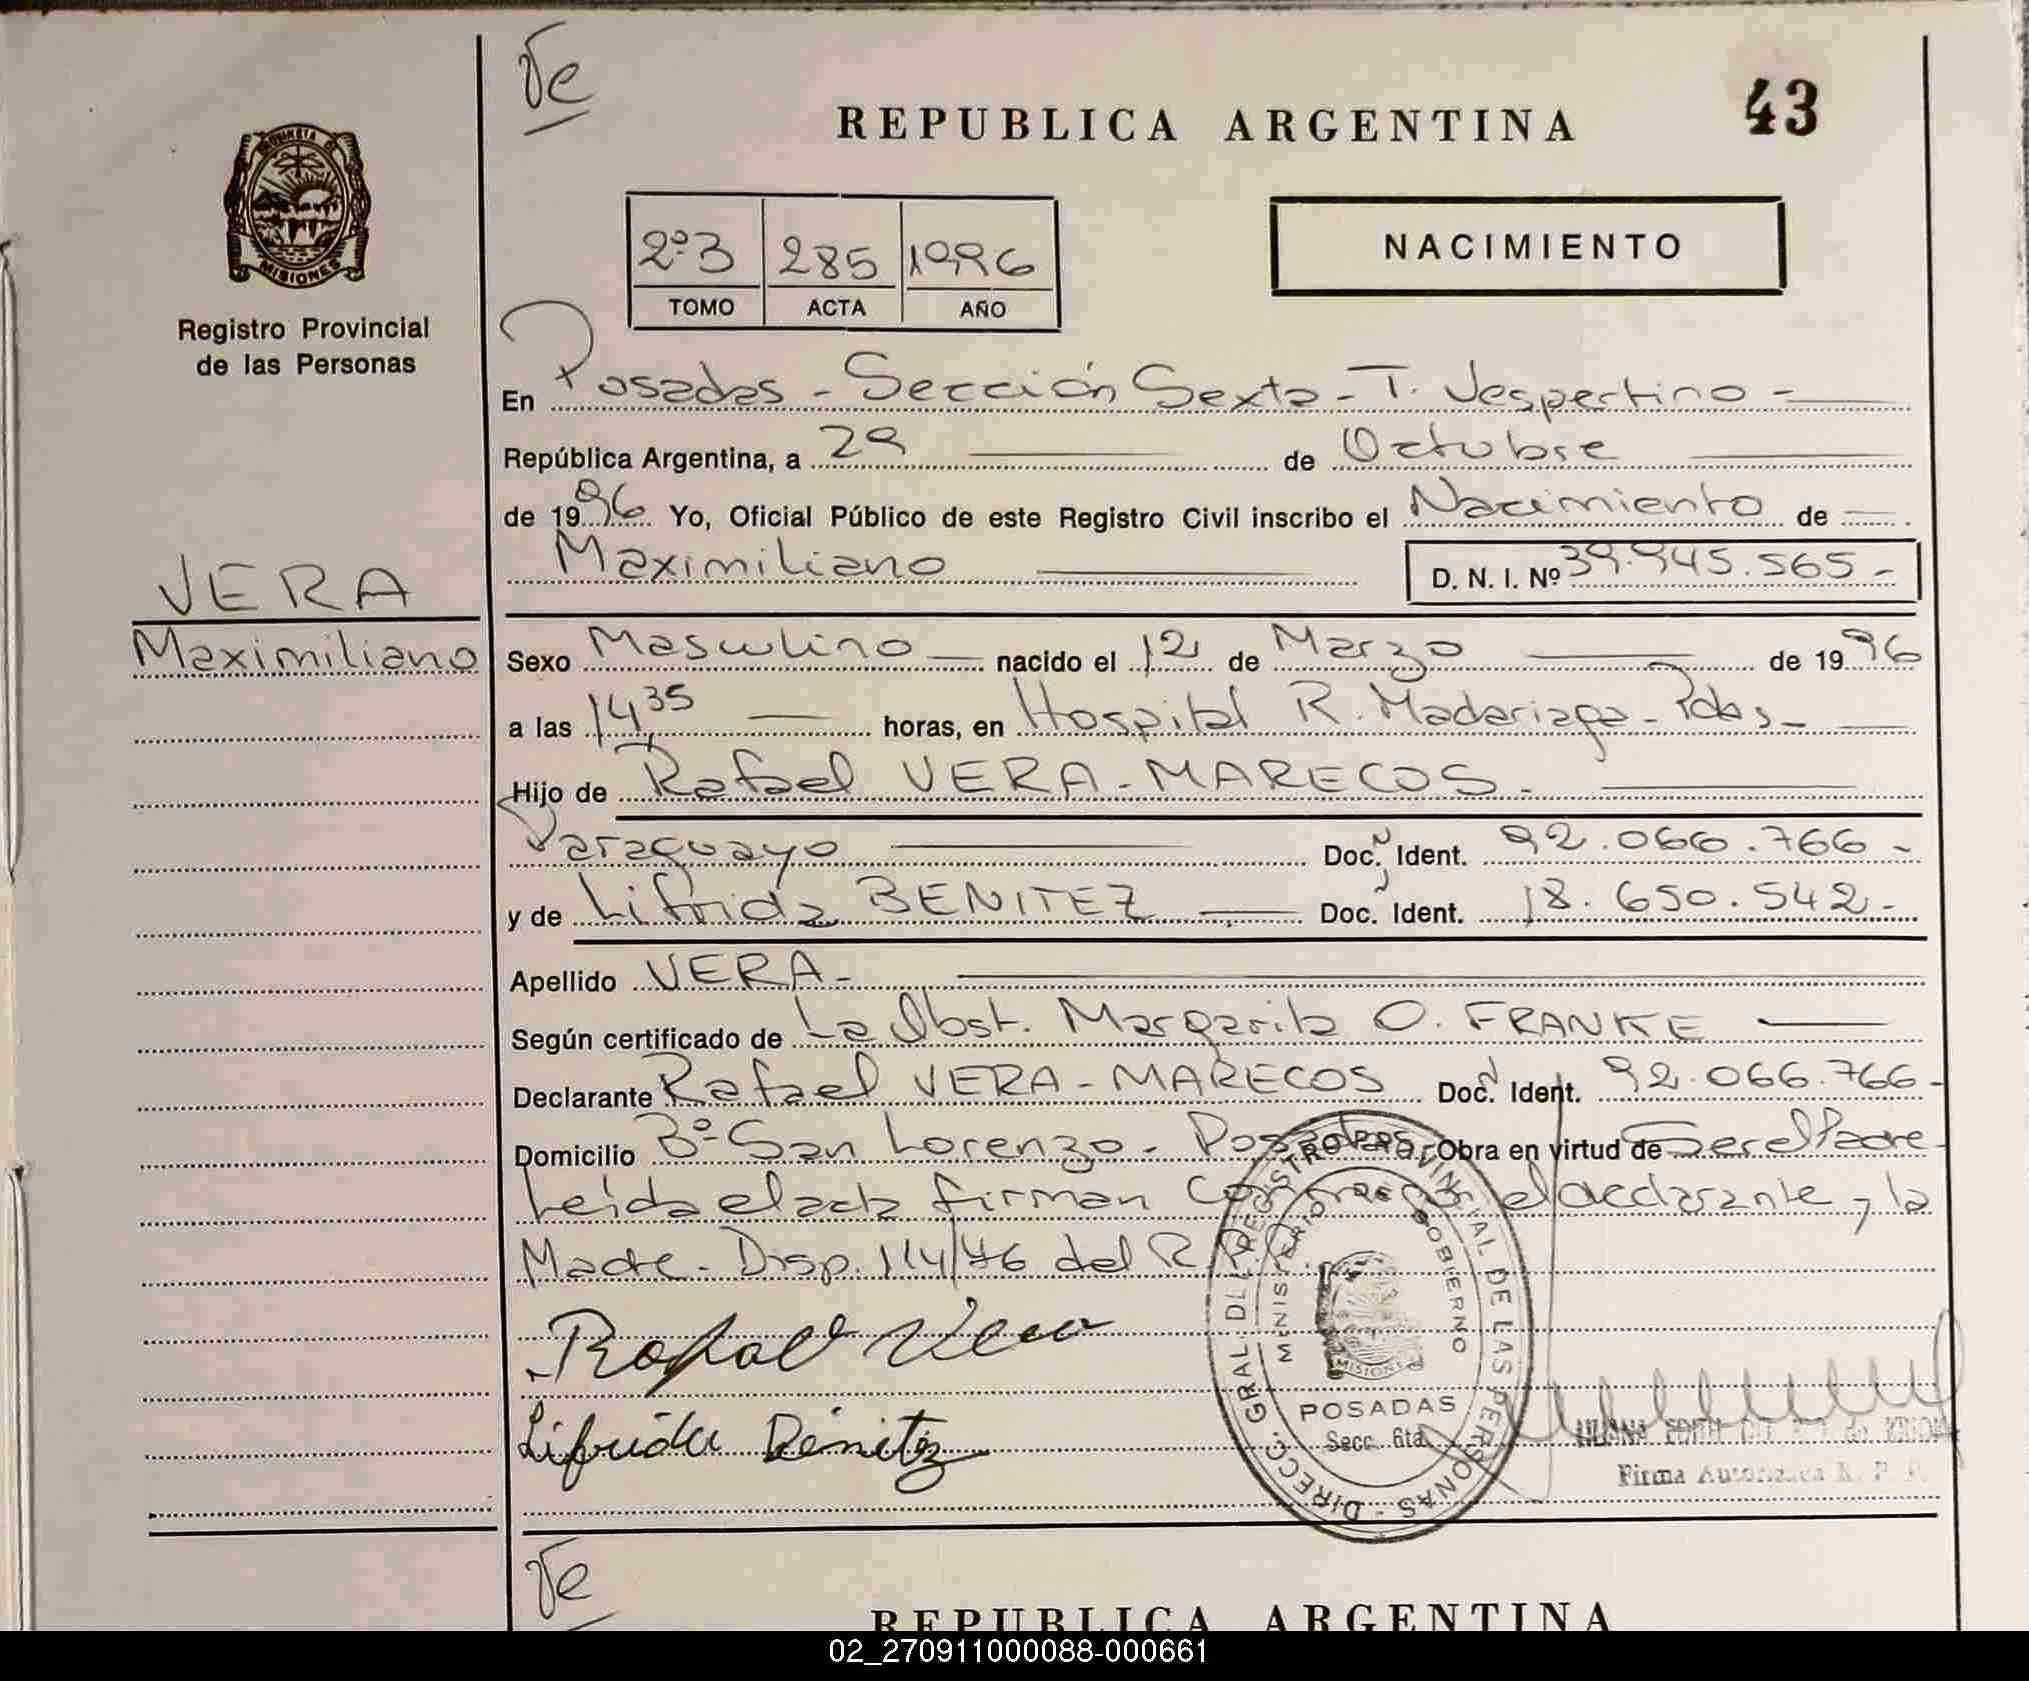 Ve
REPUBLICA ARGENTINA 43
MISIONES
Registro Provincial
de las Personas
2º3 285 1996
TOMO ACTA AÑO
NACIMIENTO
En Posadas - Sección Sexta - T. Vespertino -
República Argentina, a 29 de Octubre
de 1996 Yo, Oficial Público de este Registro Civil inscribo el Nacimiento de
Maximiliano D. N. I. Nº 39.945.565 -
VERA
Maximiliano
Sexo Masculino nacido el 12 de Marzo de 1996
a las 14,35 horas, en Hospital R. Madariaga - Pdas -
Hijo de Rafael VERA - MARECOS -
Paraguayo Doc. N Ident. 92.066.766 -
y de Lifrida BENITEZ Doc. Ident. 18.650.542 -
Apellido VERA -
Según certificado de La Obst. Margarita O. FRANKE
Declarante Rafael VERA - MARECOS Doc. N Ident. 92.066.766 -
Domicilio Bº San Lorenzo - Posadas Obra en virtud de Ser el Padre -
Leida el acta firman conmigo el declarante y la
Madre - Disp. 114/76 del R.P.P.
Rafael Vera
Lifrida Benitez
DIRECC. GRAL. DEL REGISTRO PROVINCIAL DE LAS PERSONAS -
MINISTERIO DE GOBIERNO
MISIONES
POSADAS
Secc. 6ta.
Firma Autorizada R. P. P.
Ve
REPUBLICA ARGENTINA
02_270911000088-000661